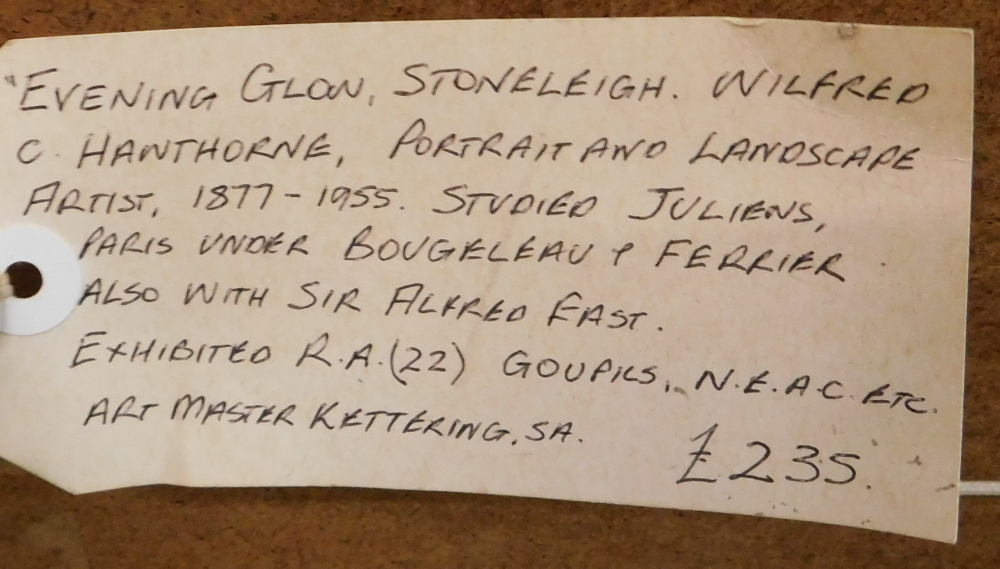 "EVENING GLOW, STONELEIGH. WILFRED
C. HAWTHORNE, PORTRAIT AND LANDSCAPE
ARTIST, 1877-1955. STUDIED JULIENS,
PARIS UNDER BOUGELEAU & FERRIER
ALSO WITH SIR ALFRED EAST.
EXHIBITED R.A.(22) GOUPILS, N.E.A.C. ETC.
ART MASTER KETTERING, SA.
£235.